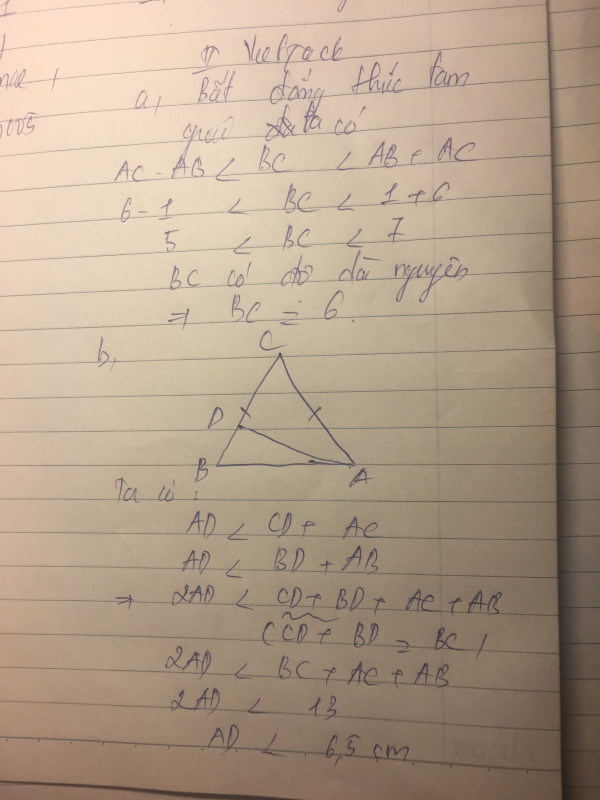 005
Vietjack
a, Bất đẳng thức tam
giác ta có
AC - AB < BC < AB + AC
6 - 1 < BC < 1 + 6
5 < BC < 7
BC có độ dài nguyên
⇒ BC = 6.
b,
C
D
B
A
Ta có :
AD < CD + AC
AD < BD + AB
⇒ 2AD < CD + BD + AC + AB
(CD + BD = BC)
2AD < BC + AC + AB
2AD < 13
AD < 6,5 cm